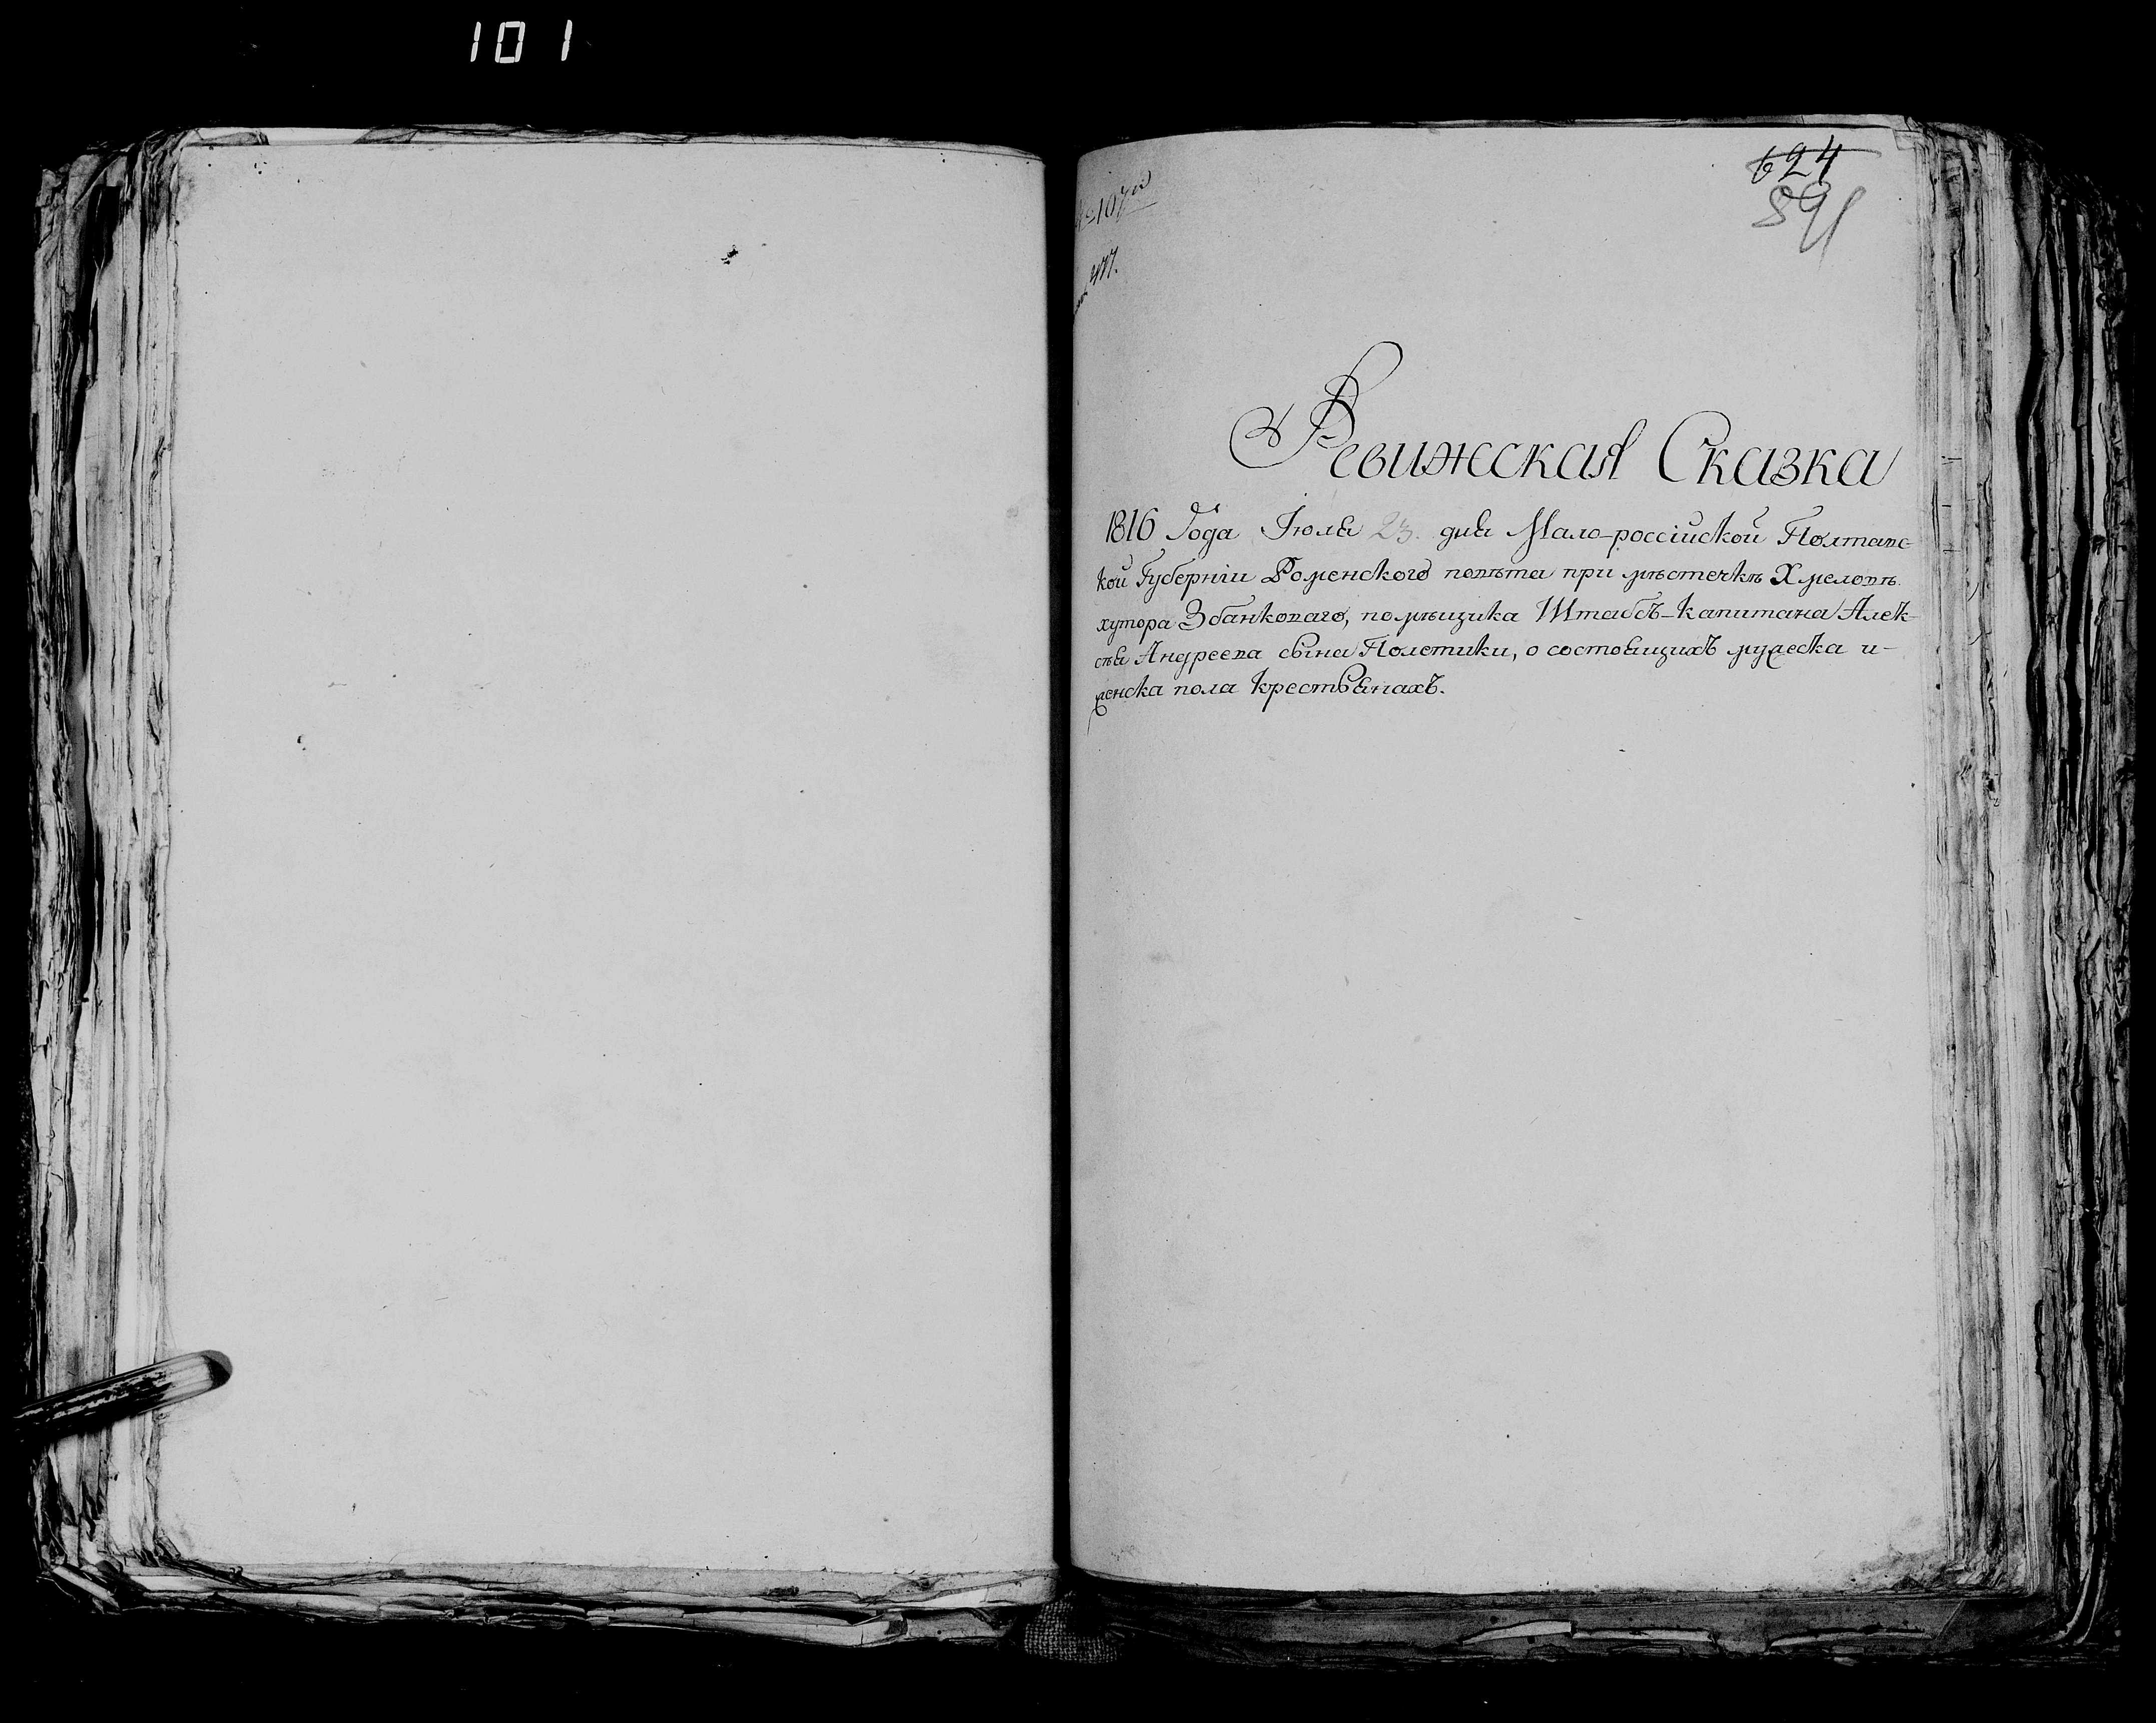 101
624
891
№ 107й
Ревижская Сказка
1816 Года Іюля 23. дня Мало-россійской Полтавс-
кой Губерніи Роменского повѣта при мѣстечкѣ Хмеловѣ.
хутора Збанковаго, помѣщика Штабсъ-Капитана Алек-
сѣя Андреева сына Полетики, о состоящихъ мужеска и-
женска пола крестьянахъ.